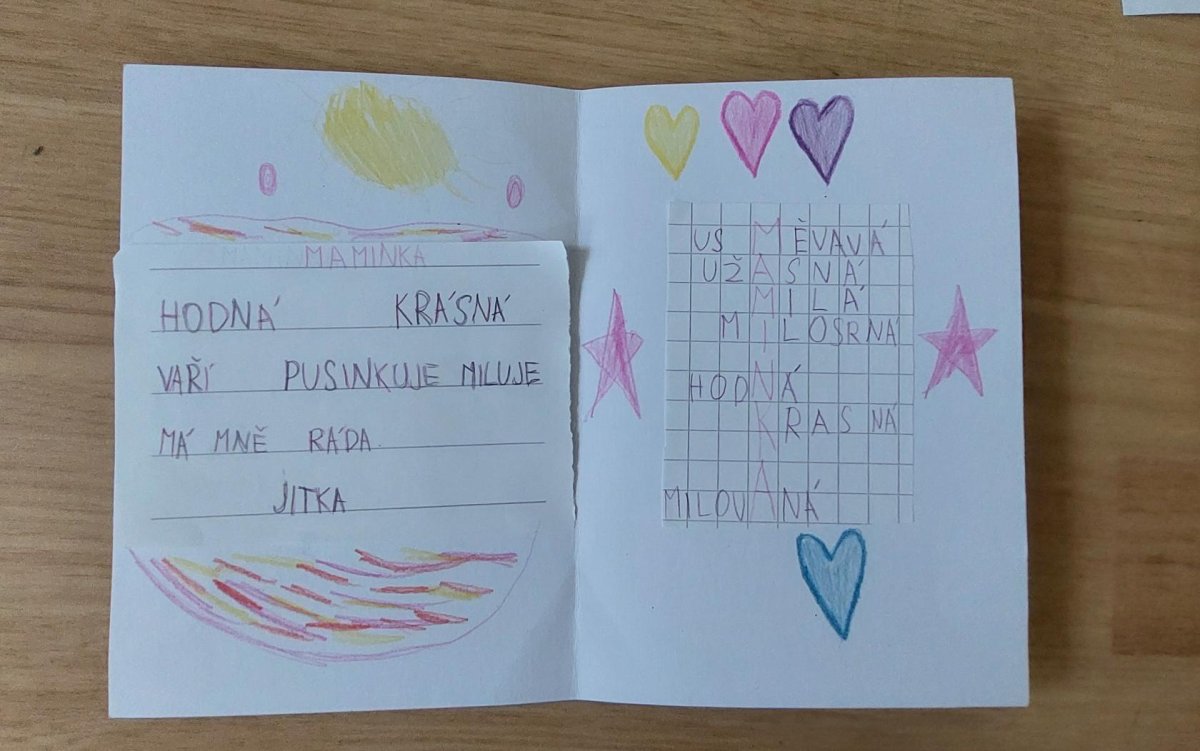 MAMINKA
HODNÁ KRÁSNÁ
VAŘÍ PUSINKUJE MILUJE
MÁ MNĚ RÁDA.
JITKA
USMĚVAVÁ
UŽASNÁ
MILÁ
MILOSRNÁ
HODNÁ
KRASNÁ
MILOVANÁ